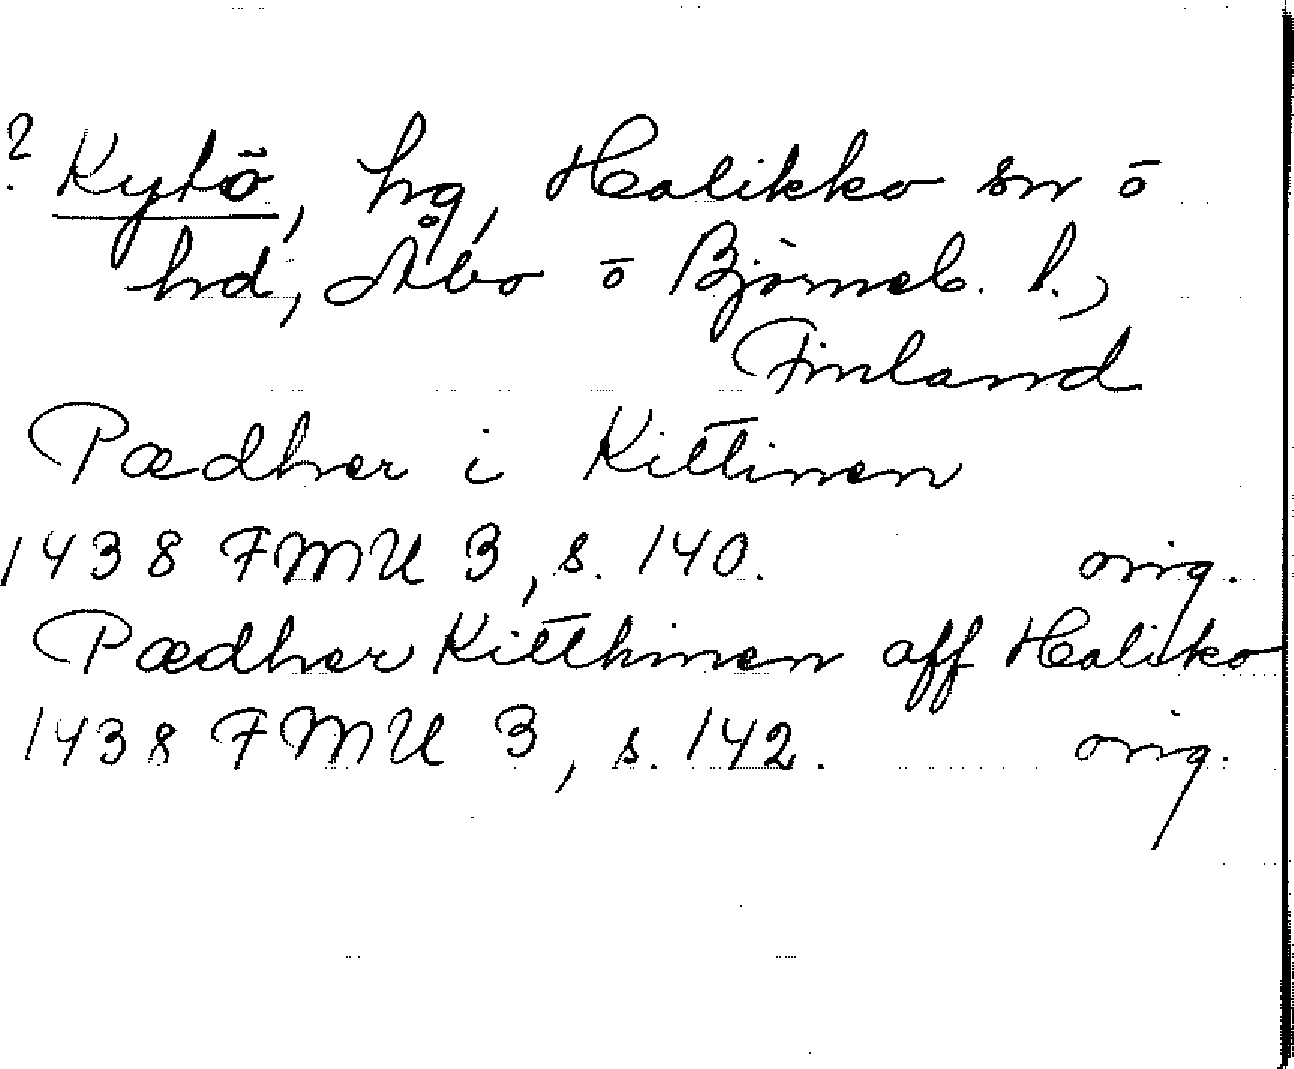 ? Kytö, hg, Halikko sn o
hd, Åbo o Björneb. l.,
Finland
Pædher i Kittinen
1438 FMU 3, s. 140. orig.
Pædher Kitthinen aff Haliko
1438 FMU 3, s. 142. orig.